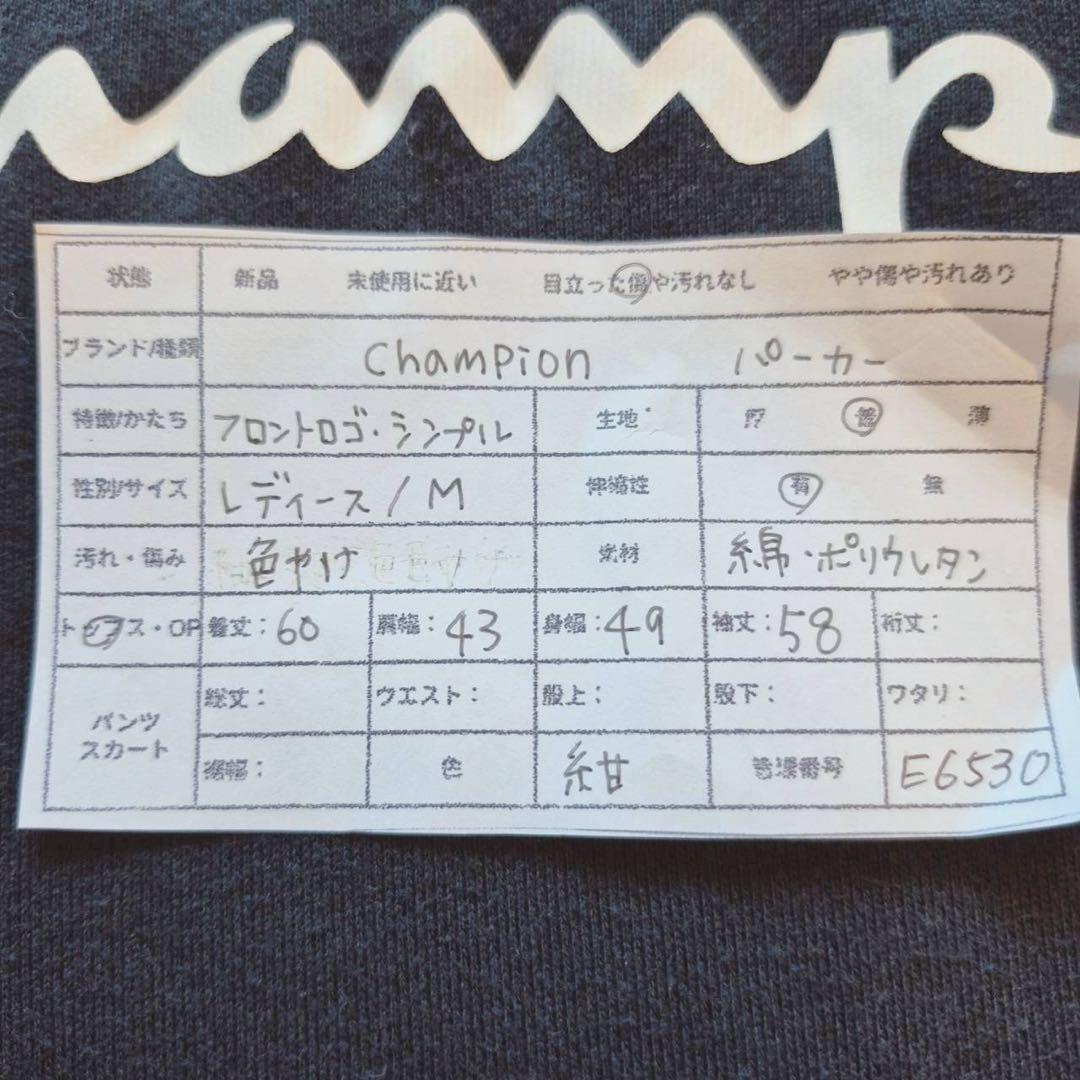 champ
状態 新品 未使用に近い 目立った傷や汚れなし やや傷や汚れあり
ブランド/種類 Champion パーカー
特徴/かたち フロントロゴ・シンプル 生地 厚 普 薄
性別/サイズ レディース/M 伸縮性 有 無
汚れ・傷み 色やけ 素材 綿・ポリウレタン
トップス・OP 着丈:60 肩幅:43 身幅:49 袖丈:58 裄丈:
パンツ スカート 総丈: ウエスト: 股上: 股下: ワタリ:
裾幅: 色 紺 管理番号 E6530